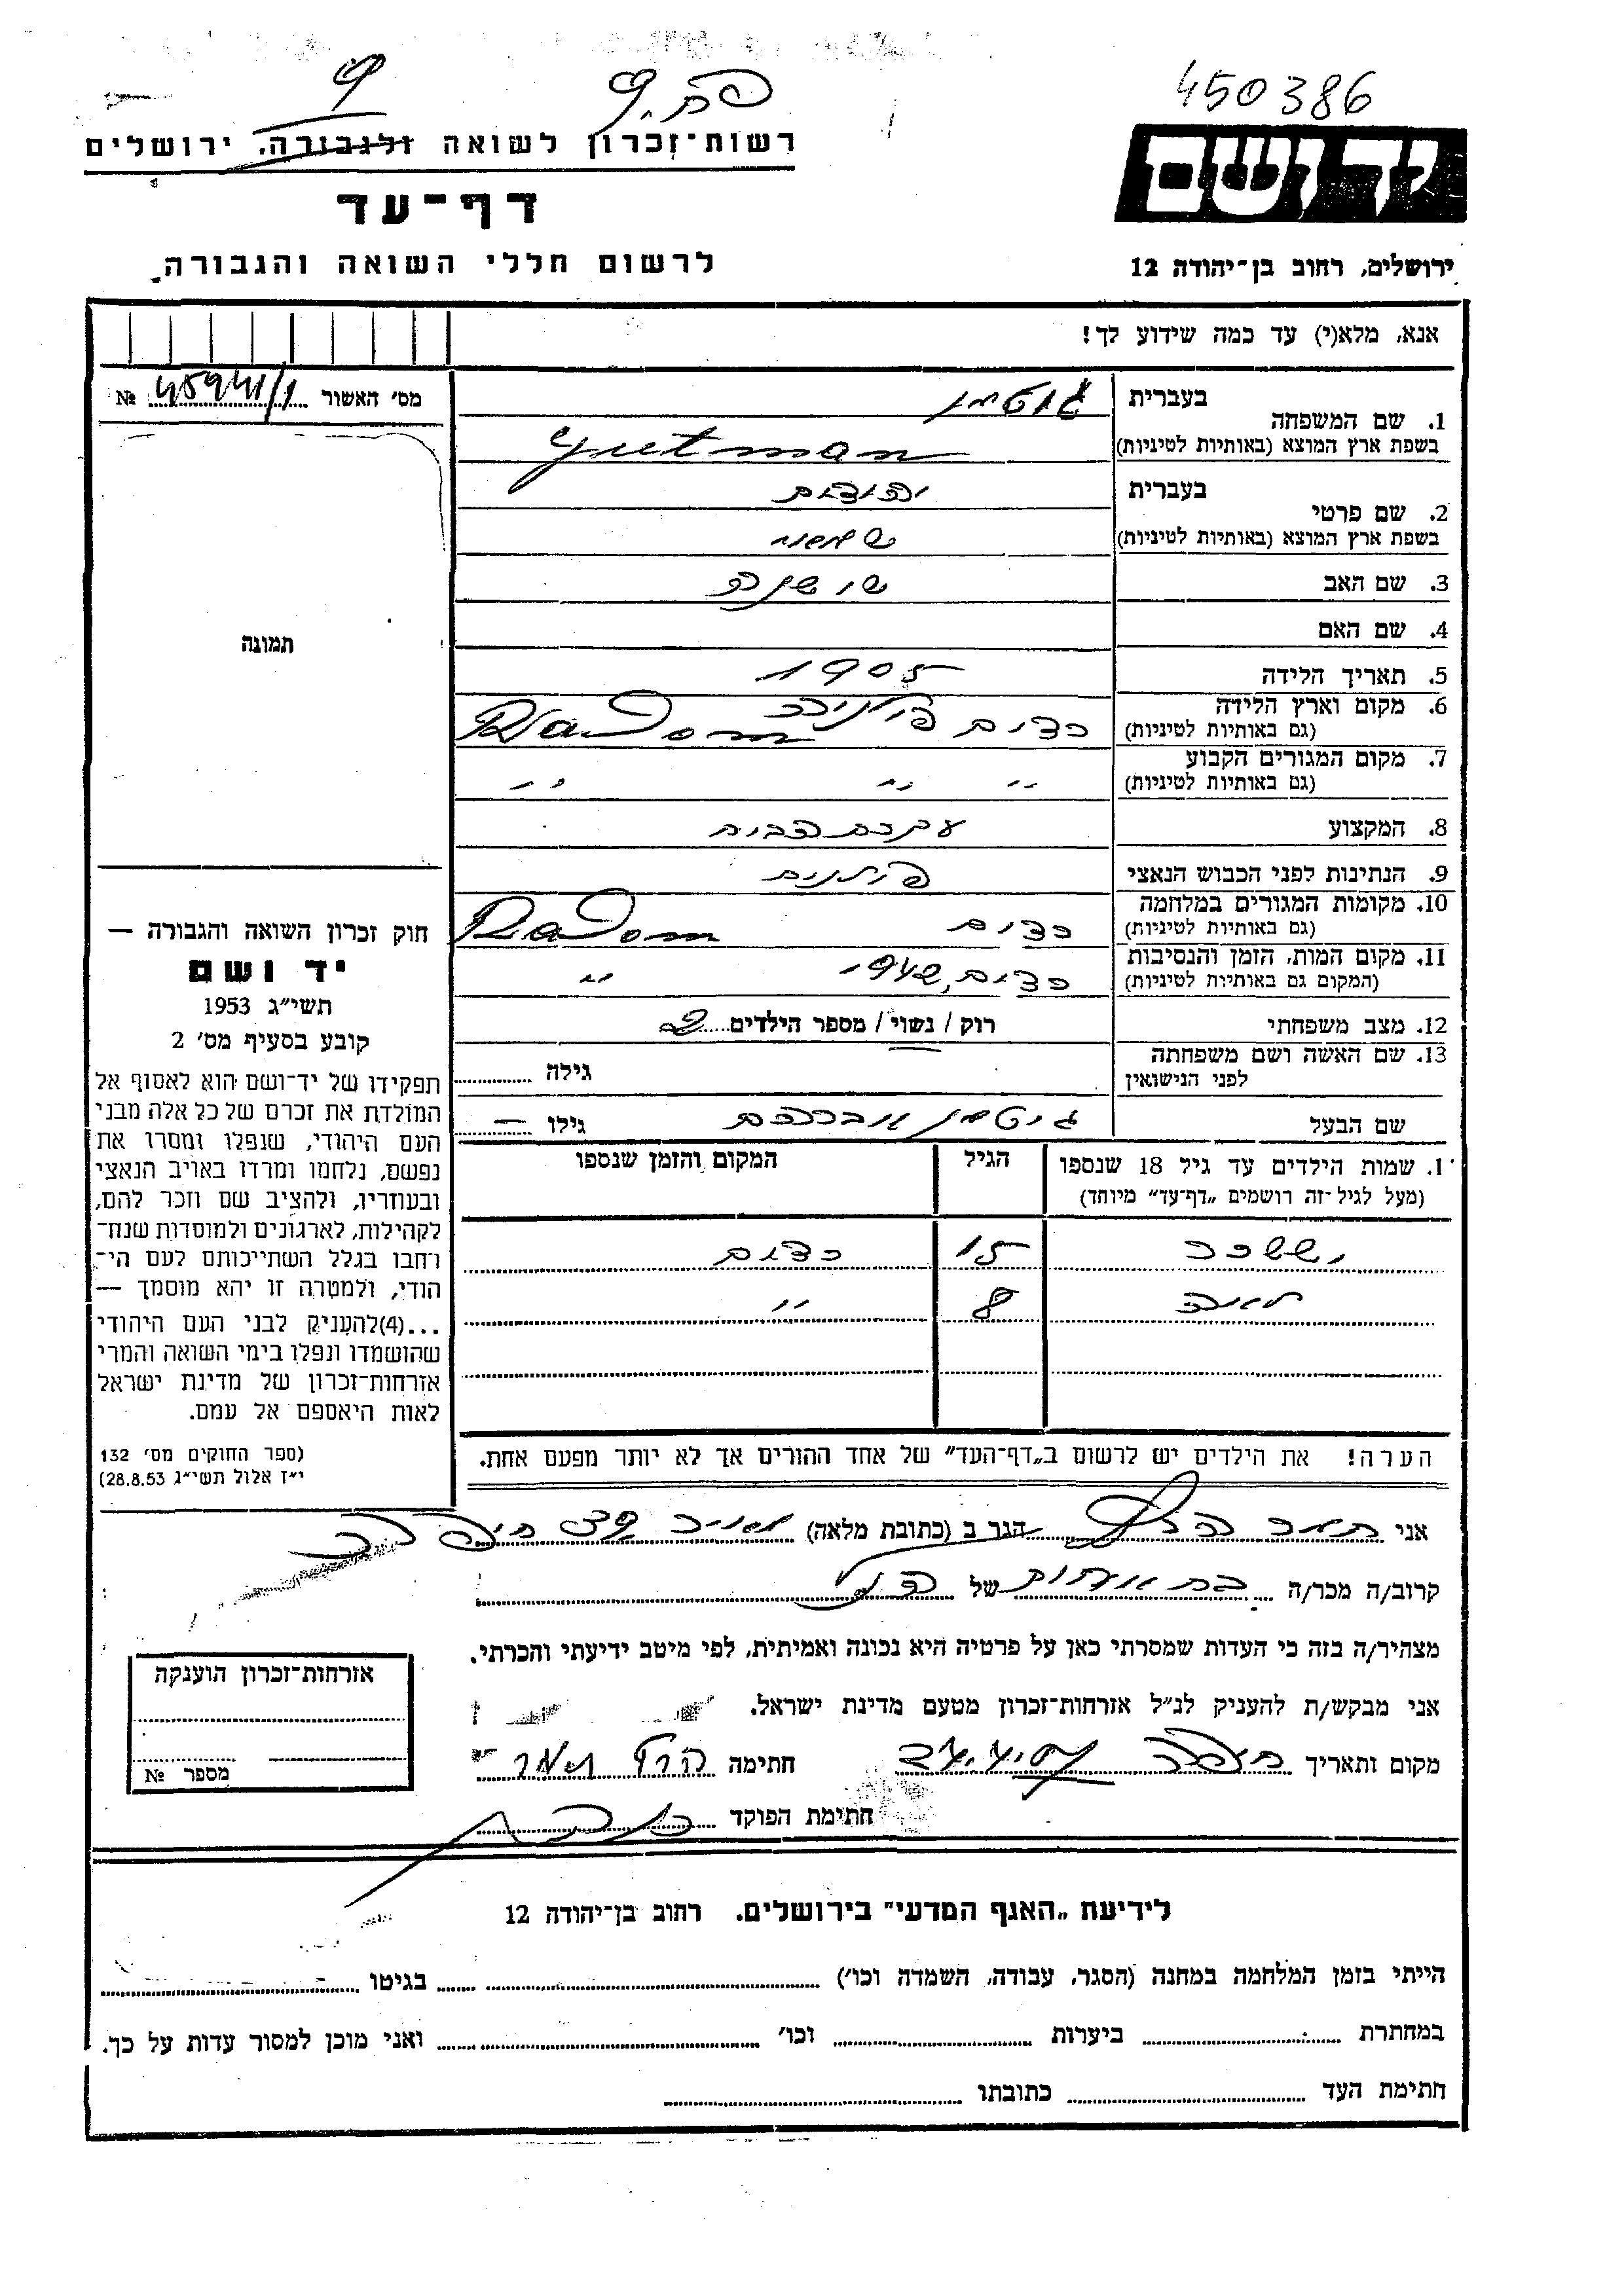 450386
יד ושם
רשות־זכרון לשואה ולגבורה, ירושלים
דף־עד
לרשום חללי השואה והגבורה.
ירושלים, רחוב בן־יהודה 12
אנא, מלא(י) עד כמה שידוע לך!
מס׳ האשור № 45941/1
תמונה
1. שם המשפחה בעברית גוטמן
בשפת ארץ המוצא (באותיות לטיניות) Gutman
2. שם פרטי בעברית יהודית
בשפת ארץ המוצא (באותיות לטיניות)
3. שם האב שושנה
4. שם האם
5. תאריך הלידה 1905
6. מקום וארץ הלידה (גם באותיות לטיניות) רדום Radom
7. מקום המגורים הקבוע (גם באותיות לטיניות) ״ ״ ״
8. המקצוע עקרת הבית
9. הנתינות לפני הכבוש הנאצי פולנית
10. מקומות המגורים במלחמה (גם באותיות לטיניות) רדום Radom
11. מקום המות, הזמן והנסיבות (המקום גם באותיות לטיניות) רדום, 1942 ״
12. מצב משפחתי רוק / נשוי / מספר הילדים 2
13. שם האשה ושם משפחתה לפני הנישואין גילה
שם הבעל גוטמן אברהם גילו —
1. שמות הילדים עד גיל 18 שנספו (מעל לגיל־זה רושמים „דף־עד״ מיוחד)
הגיל
המקום והזמן שנספו
יששכר 15 רדום
8 ״
הערה! את הילדים יש לרשום ב„דף־העד״ של אחד ההורים אך לא יותר מפעם אחת.
חוק זכרון השואה והגבורה —
יד ושם
תשי״ג 1953
קובע בסעיף מס׳ 2
תפקידו של יד־ושם הוא לאסוף אל
המולדת את זכרם של כל אלה מבני
העם היהודי, שנפלו ומסרו את
נפשם, נלחמו ומרדו באויב הנאצי
ובעוזריו, ולהציב שם וזכר להם,
לקהילות, לארגונים ולמוסדות שנח־
רחבו בגלל השתייכותם לעם הי־
הודי, ולמטרה זו יהא מוסמך —
...(4)להעניק לבני העם היהודי
שהושמדו ונפלו בימי השואה והמרי
אזרחות־זכרון של מדינת ישראל
לאות היאספם אל עמם.
(ספר החוקים מס׳ 132
י״ז אלול תשי״ג 28.8.53)
אני תמר הרץ הגר ב (כתובת מלאה) חיפה
קרוב/ה מכר/ה בת אחות של הנ״ל
מצהיר/ה בזה כי העדות שמסרתי כאן על פרטיה היא נכונה ואמיתית, לפי מיטב ידיעתי והכרתי.
אני מבקש/ת להעניק לנ״ל אזרחות־זכרון מטעם מדינת ישראל.
מקום ותאריך חיפה חתימה הרץ תמר
חתימת הפוקד
אזרחות־זכרון הוענקה
מספר №
לידיעת „האגף המדעי״ בירושלים. רחוב בן־יהודה 12
הייתי בזמן המלחמה במחנה (הסגר, עבודה, השמדה וכו׳) בגיטו
במחתרת ביערות וכו׳ ואני מוכן למסור עדות על כך.
חתימת העד כתובתו